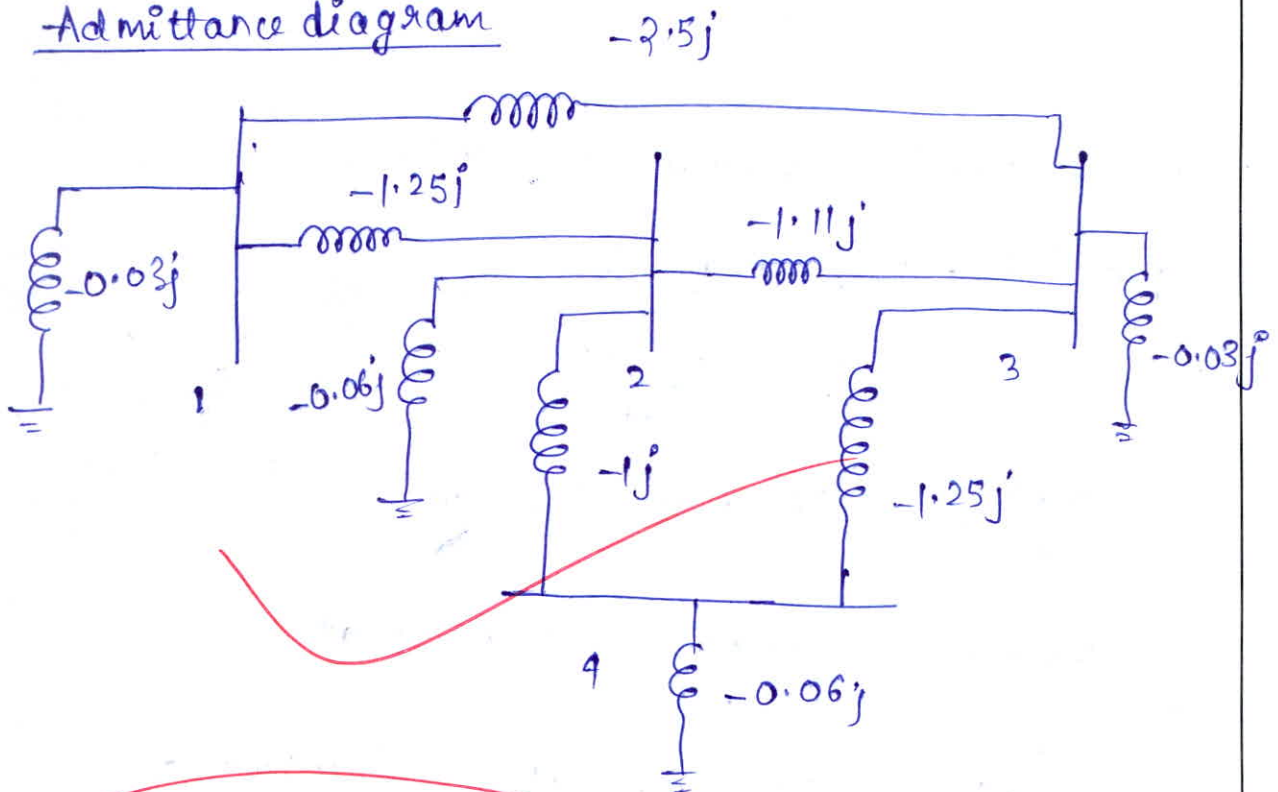 Admittance diagram
-2.5j
-1.25j
-1.11j
-0.03j
-0.03j
1
-0.06j
2
3
-1j
-1.25j
4
-0.06j